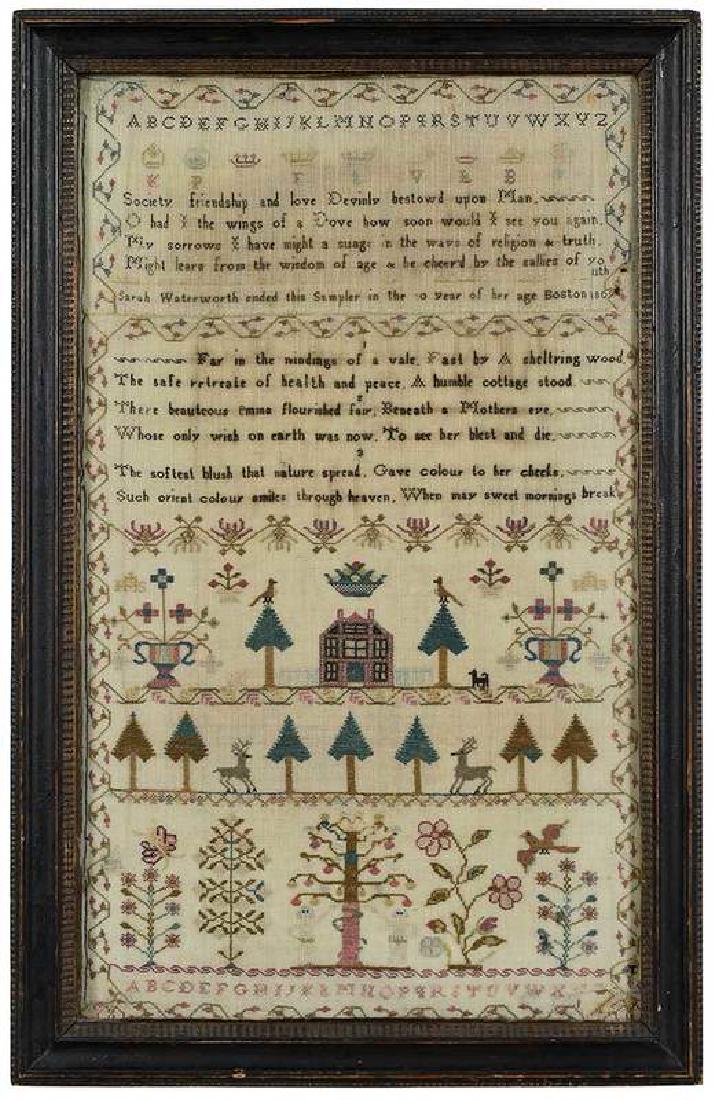 ABCDEFGHIJKLMNOPQRSTUVWXYZ
K P F L V E B
Society friendship and love Devinly bestow'd upon Man.
O had I the wings of a Dove how soon would I see you again.
My sorrows I have might a suage in the ways of religion & truth.
Might learn from the wisdom of age & be cheer'd by the sallies of yo
uth
Sarah Waterworth ended this Sampler in the year of her age Boston
1
Far in the nindings of a vale, Fast by A sheltring wood
The safe retreate of health and peace, A humble cottage stood
2
There beauteous emma flourished fair, Beneath a Mothers eye,
Whose only wish on earth was now, To see her blest and die,
3
The softest blush that nature spread, Gave colour to her cheeks,
Such orient colour smiles through heaven, When may sweet mornings break
ABCDEFGHIJKLMNOPQRSTUVWXY